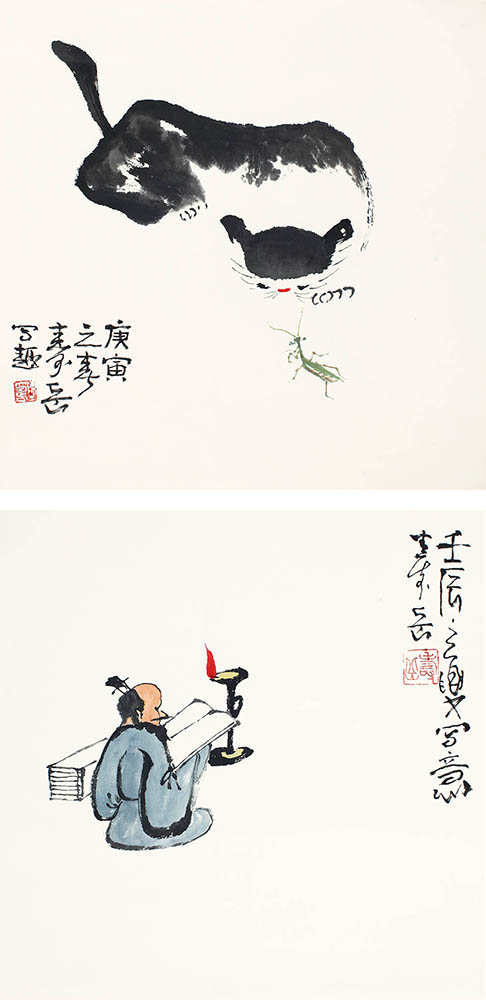 庚寅
之春
寿岳
写趣
壬辰之写意
寿岳